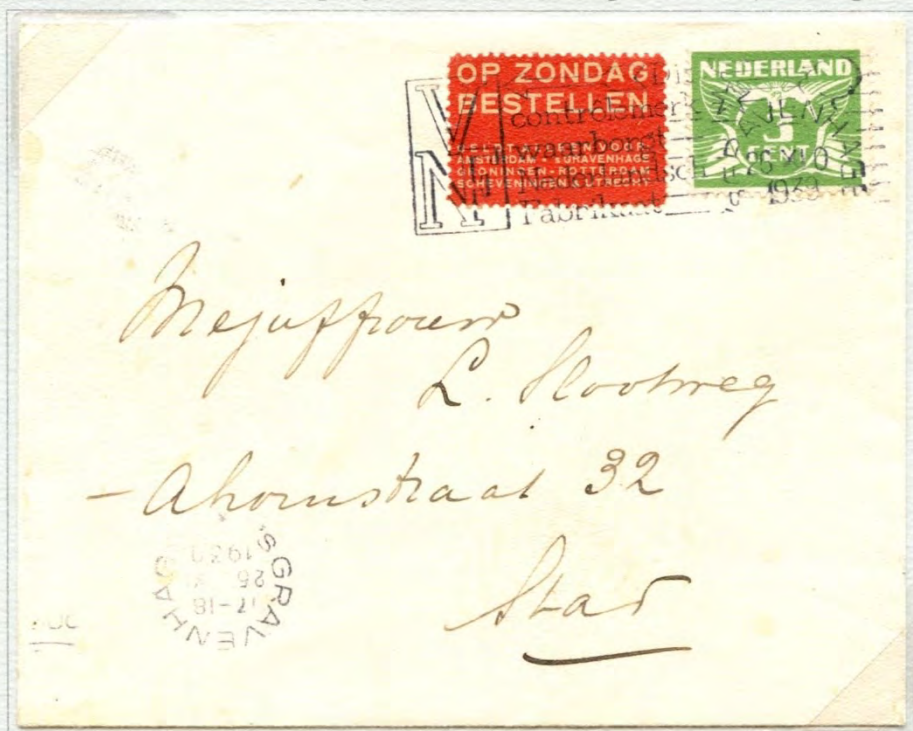 OP ZONDAG
BESTELLEN
GELDT ALLEEN VOOR
AMSTERDAM - 'S GRAVENHAGE
GRONINGEN - ROTTERDAM
SCHEVENINGEN & UTRECHT
NEDERLAND
3
CENT
VN
controlemerk
waarborgt
Nederlandsch
Fabrikaat
'S GRAVENHAGE
1939
Mejuffrouw
L. Slootweg
- Ahornstraat 32
Stad
'S GRAVENHAGE
17-18
1939